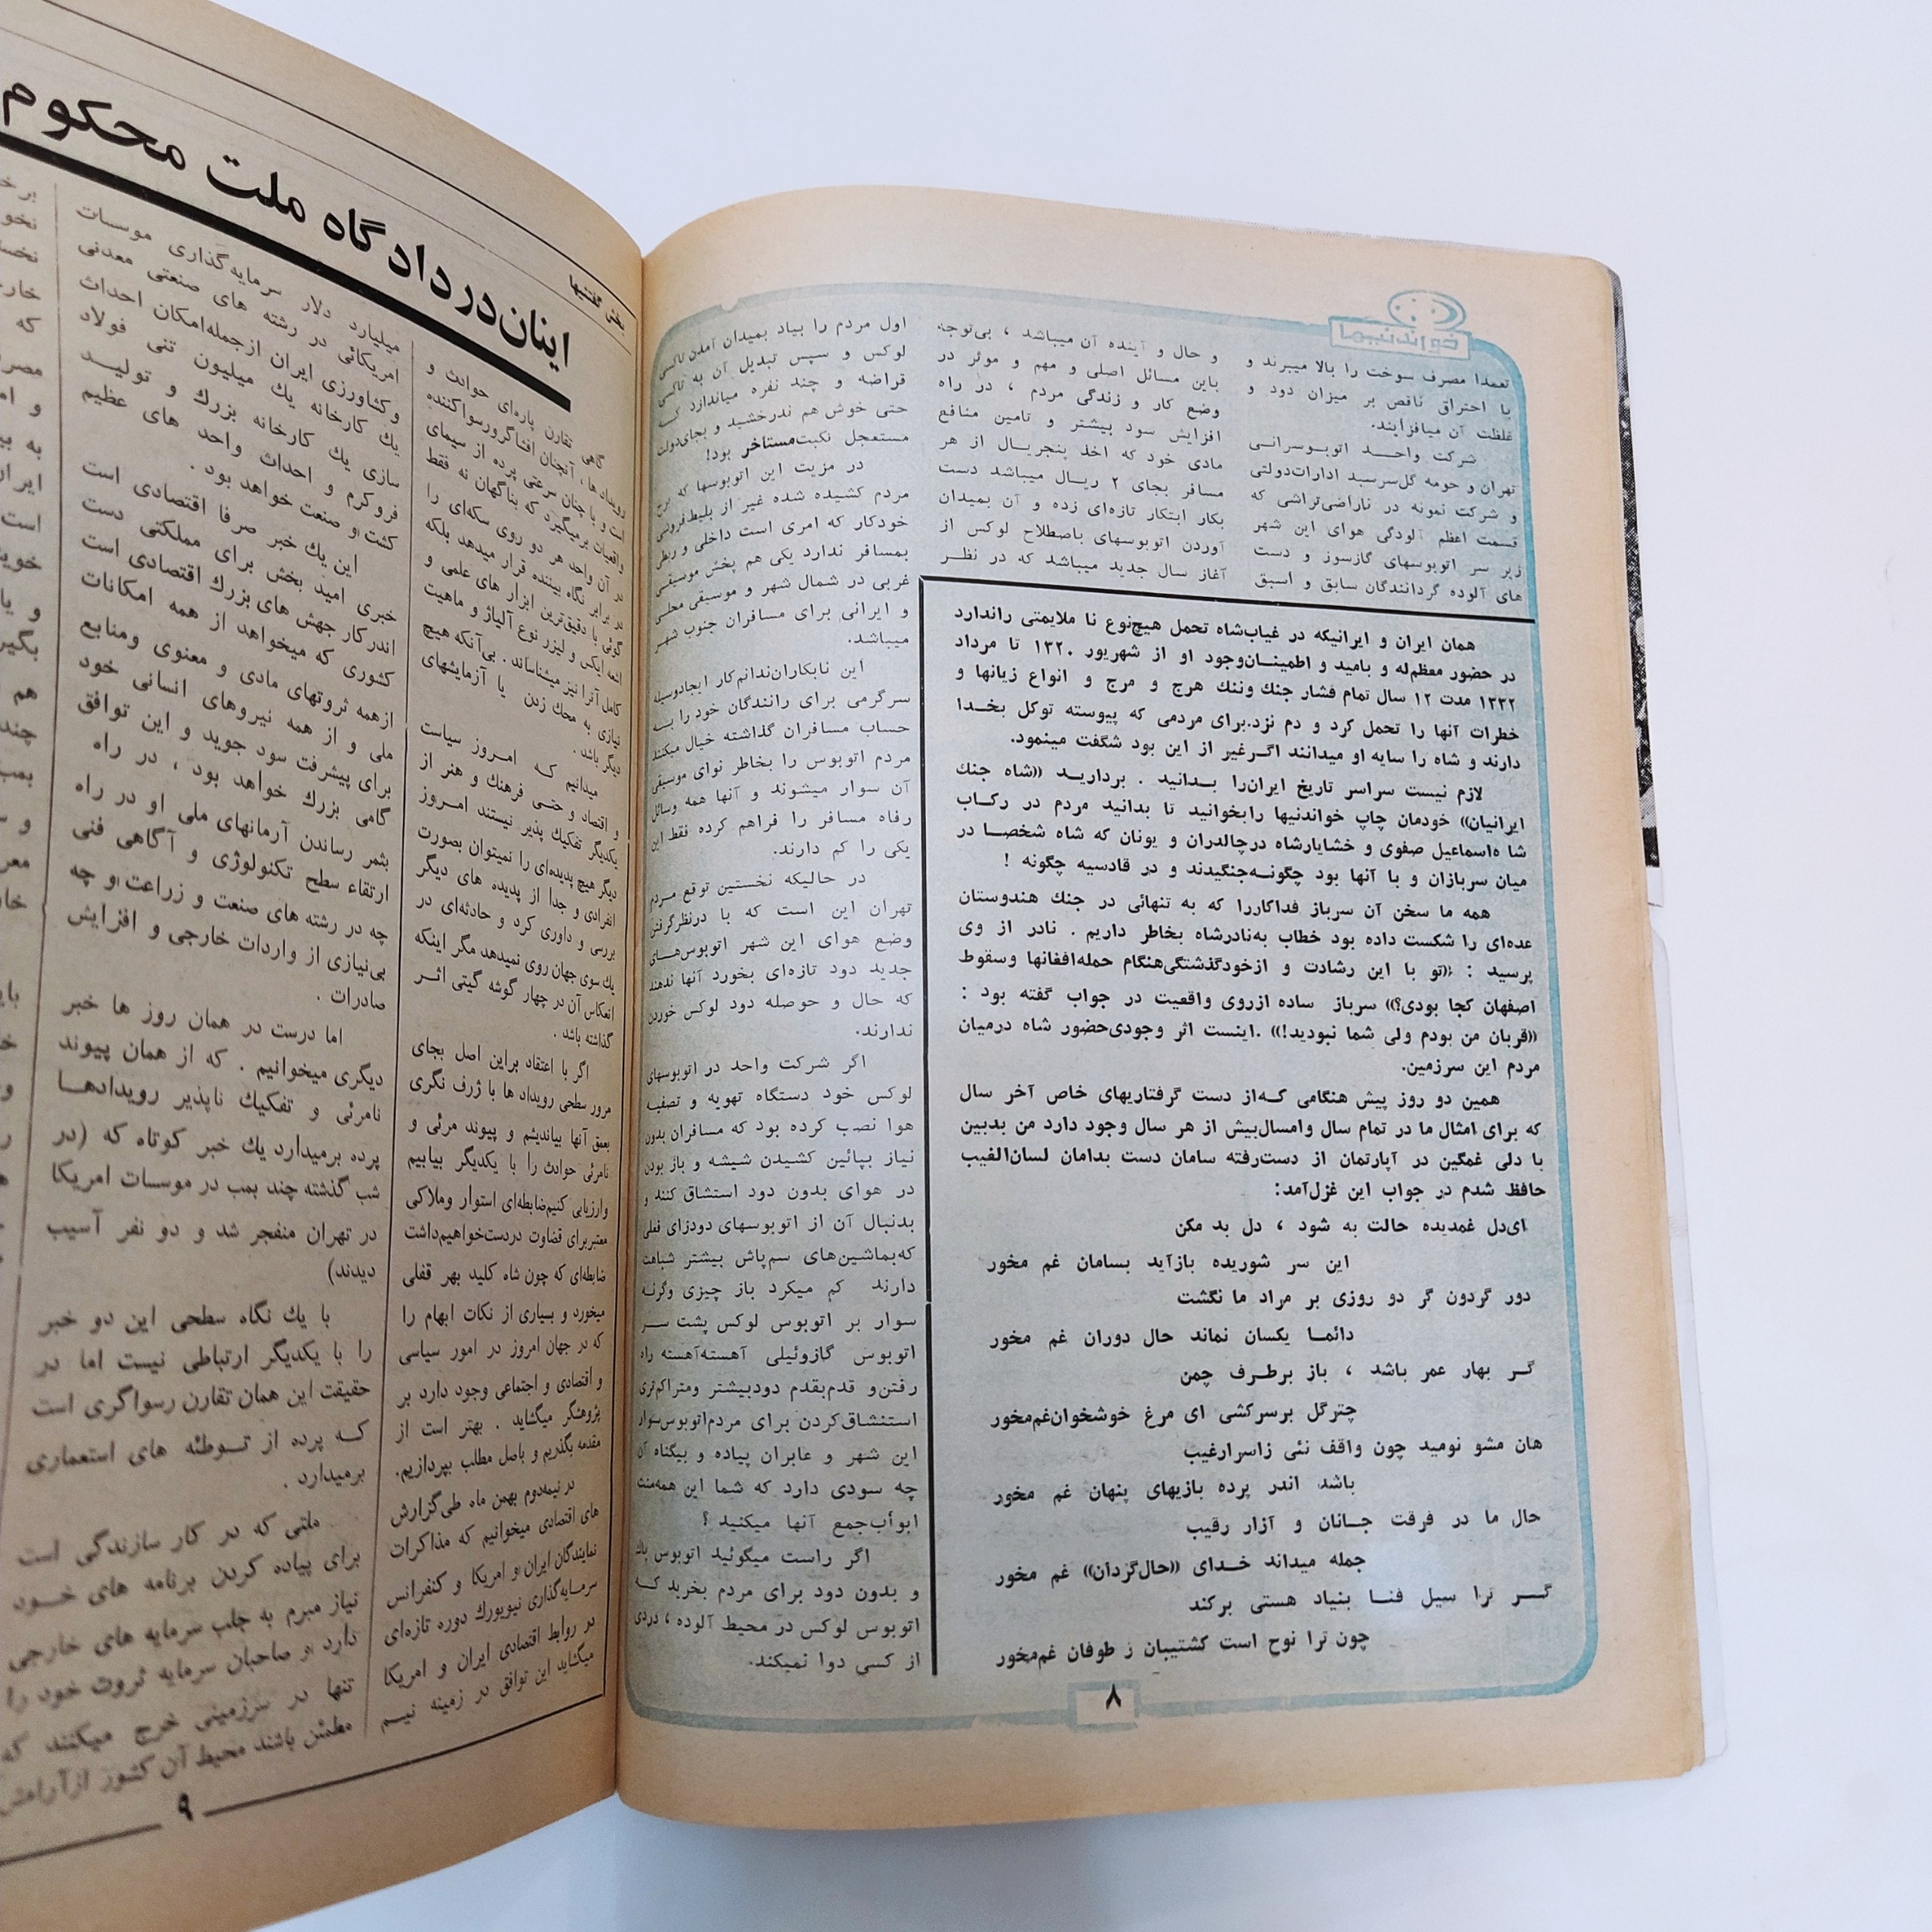 خواندنیها
تعمدا مصرف سوخت را بالا میبرند و
با احتراق ناقص بر میزان دود و
غلظت آن میافزآیند.
شرکت واحـــد اتوبـوسرانـی
تهران و حومه گل‌سرسبد ادارات‌دولتی
و شرکت نمونه در ناراضی‌تراشی که
قسمت اعظم آلودگی هوای این شهر
زیر سر اتوبوسهای گازسوز و دست
های آلوده گردانندگان سابق و اسبق
و حال و آینده آن میباشد ، بی‌توجه
باین مسائل اصلی و مهم و موثر در
وضع کار و زندگی مردم ، در راه
افزایش سود بیشتر و تامین منافع
مادی خود که اخذ پنجریـال از هر
مسافر بجای ۲ ریـال میباشد دست
بکار ابتکار تازه‌ای زده و آن بمیدان
آوردن اتوبوسهای باصطلاح لوکس از
آغاز سال جدید میباشد که در نظـر
اول مردم را بیاد بمیدان آمدن تاکسی
لوکس و سپس تبدیل آن به تاکسی
قراضه و چند نفره میاندازد کــه
حتی خوش هم ندرخشید و بجای‌دولت
مستعجل نکبت‌مستاخر بود!
در مزیت این اتوبوسها که برخ
مردم کشیده شده غیر از بلیط‌فروشی
خودکار که امری است داخلی و ربطی
بمسافر ندارد یکی هم پخش موسیقی
غربی در شمال شهر و موسیقی محلی
و ایرانی برای مسافران جنوب شهر
میباشد.
این نابکاران‌ندانم‌کار ایجادوسیله
سرگرمی برای رانندگان خود را بــه
حساب مسافران گذاشته خیال میکنند
مردم اتوبوس را بخاطر نوای موسیقی
آن سوار میشوند و آنها همه وسائل
رفاه مسافر را فراهم کرده فقط این
یکی را کم دارند.
در حالیکه نخستین توقع مـردم
تهران این است که با درنظرگرفتن
وضع هوای این شهر اتوبوس‌هـای
جدید دود تازه‌ای بخورد آنها ندهند
که حال و حوصله دود لوکس خوردن
ندارند.
اگر شرکت واحد در اتوبوسهای
لوکس خود دستگاه تهویه و تصفیه
هوا نصب کرده بود که مسافران بدون
نیاز بپائین کشیدن شیشه و باز بودن
در هوای بدون دود استشاق کنند و
بدنبال آن از اتوبوسهای دودزای فعلی
که‌بماشین‌های سم‌پاش بیشتر شباهت
دارند کم میکرد باز چیزی وگرنه
سوار بر اتوبوس لوکس پشت ســر
اتوبوس گازوئیلی آهسته‌آهسته راه
رفتن‌و قدم‌بقدم دودبیشتر ومتراکم‌تری
استنشاق‌کردن برای مردم‌اتوبوس‌سوار
این شهر و عابران پیاده و بیگناه آن
چه سودی دارد که شما این همه‌منت
ابوآب‌جمع آنها میکنید ؟
اگر راست میگوئید اتوبوس پاك
و بدون دود برای مردم بخرید کــه
اتوبوس لوکس در محیط آلوده ، دردی
از کسی دوا نمیکند.
همان ایران و ایرانیکه در غیاب‌شاه تحمل هیچ‌نوع نا ملایمتی راندارد
در حضور معظم‌له و بامید و اطمینــان‌وجود او از شهریور ۱۳۲۰ تا مرداد
۱۳۳۲ مدت ۱۲ سال تمام فشار جنك وننك هرج و مرج و انواع زیانها و
خطرات آنها را تحمل کرد و دم نزد.برای مردمی که پیوسته توکل بخـدا
دارند و شاه را سایه او میدانند اگـرغیر از این بود شگفت مینمود.
لازم نیست سراسر تاریخ ایران‌را بـدانید . برداریـد «شاه جنك
ایرانیان» خودمان چاپ خواندنیها رابخوانید تا بدانید مردم در رکـاب
شا ه‌اسماعیل صفوی و خشایارشاه درچالدران و یونان که شاه شخصـا در
میان سربازان و با آنها بود چگونـه‌جنگیدند و در قادسیه چگونه !
همه ما سخن آن سرباز فداکاررا که به تنهائی در جنك هندوستان
عده‌ای را شکست داده بود خطاب به‌نادرشاه بخاطر داریم . نادر از وی
پرسید : «تو با این رشادت و ازخودگذشتگی‌هنگام حمله‌افغانها وسقوط
اصفهان کجا بودی؟» سرباز ساده ازروی واقعیت در جواب گفته بود :
«قربان من بودم ولی شما نبودید!» .اینست اثر وجودی‌حضور شاه درمیان
مردم این سرزمین.
همین دو روز پیش هنگامی کـه‌از دست گرفتاریهای خاص آخر سال
که برای امثال ما در تمام سال وامسال‌بیش از هر سال وجود دارد من بدبین
با دلی غمگین در آپارتمان از دست‌رفته سامان دست بدامان لسان‌الغیب
حافظ شدم در جواب این غزل‌آمد:
ای‌دل غمدیده حالت به شود ، دل بد مکن
این سر شوریده بازآید بسامان غم مخور
دور گردون گر دو روزی بر مراد ما نگشت
دائمـا یکسان نماند حال دوران غم مخور
گـر بهار عمر باشد ، باز برطـرف چمن
چترگل برسرکشی ای مرغ خوشخوان‌غم‌مخور
هان مشو نومید چون واقف نئی زاسرارغیب
باشد اندر پرده بازیهای پنهان غم مخور
حال ما در فرقت جـانان و آزار رقیب
جمله میداند خـدای «حال‌گردان» غم مخور
گـر ترا سیل فنـا بنیاد هستی برکند
چون ترا نوح است کشتیبان ز طوفان غم‌مخور
۸
بخش گفتنیها
اینان‌در دادگاه ملت محکوم
گاهی تقارن پاره‌ای حوادث و
رویدادها ، آنچنان افشاگرورسواکننده
است و با چنان سرعتی پرده از سیمای
واقعیات برمیگیرد که بناگهان نه فقط
در آن واحد هر دو روی سکه‌ای را
در برابر نگاه بیننده قرار میدهد بلکه
گوئی با دقیق‌ترین ابزار های علمی و
اشعه ایکس و لیزر نوع آلیاژ و ماهیت
کامل آنرا نیز میشناساند . بی‌آنکه هیچ
نیازی به محك زدن یا آزمایشهای
دیگر باشد .
میدانیم کــه امـروز سیاست
و اقتصاد و حتـی فرهنك و هنر از
یکدیگر تفکیك پذیر نیستند امـروز
دیگر هیچ پدیده‌ای را نمیتوان بصورت
انفرادی و جدا از پدیده های دیگر
بررسی و داوری کرد و حادثه‌ای در
یك‌سوی جهان روی نمیدهد مگر اینکه
انعکاس آن در چهار گوشه گیتی اثـر
گذاشته باشد .
اگر با اعتقاد براین اصل بجای
مرور سطحی رویداد ها با ژرف نگری
بعمق آنها بیاندیشم و پیوند مرئی و
نامرئی حوادث را با یکدیگر بیابیم
وارزیابی کنیم‌ضابطه‌ای استوار وملاکی
معتبربرای قضاوت دردست‌خواهیم‌داشت
ضابطه‌ای که چون شاه کلید بهر قفلی
میخورد و بسیاری از نکات ابهام را
که در جهان امروز در امور سیاسی
و اقتصادی و اجتماعی وجود دارد بر
پژوهشگر میگشاید . بهتر است از
مقدمه بگذریم و باصل مطلب بپردازیم.
در نیمه‌دوم بهمن ماه طی‌گزارش
های اقتصادی میخوانیم که مذاکرات
نمایندگان ایران و امریکا و کنفرانس
سرمـایه‌گذاری نیویورك دوره تازه‌ای
در روابط اقتصادی ایران و امریکا
میگشاید این توافق در زمینه نیـم
میلیارد دلار سرمایه‌گذاری موسسات
امریکائی در رشته های صنعتی معدنی
وکشاورزی ایران ازجمله‌امکان احداث
یك کارخانه یك میلیون تنی فولاد
سازی یك کارخانه بزرك و تولیـد
فروکرم و احداث واحد های عظیم
کشت و صنعت خواهد بود .
این یك خبر صرفا اقتصادی است
خبری امید بخش برای مملکتی دست
اندرکار جهش های بزرك اقتصادی است
کشوری که میخواهد از همه امکانات
ازهمه ثروتهای مادی و معنوی ومنابع
ملی و از همه نیروهای انسانی خود
برای پیشرفت سود جوید و این توافق
گامی بزرك خواهد بود ، در راه
بثمر رساندن آرمانهای ملی او در راه
ارتقاء سطح تکنولوژی و آگاهی فنی
چه در رشته های صنعت و زراعت و چه
بی‌نیازی از واردات خارجی و افزایش
صادرات .
اما درست در همان روز ها خبر
دیگری میخوانیم . که از همان پیوند
نامرئی و تفکیك ناپذیر رویدادهـا
پرده برمیدارد یك خبر کوتاه که (در
شب گذشته چند بمب در موسسات امریکا
در تهران منفجر شد و دو نفر آسیب
دیدند)
با یك نگاه سطحی این دو خبر
را با یکدیگر ارتباطی نیست اما در
حقیقت این همان تقارن رسواگری است
کــه پرده از تـوطئه های استعماری
برمیدارد .
ملتی که در کار سازندگی است
برای پیاده کردن برنامه های خـود
نیاز مبرم به جلب سرمایه های خارجی
دارد و صاحبان سرمایه ثروت خود را
تنها در سرزمینی خرج میکنند که
مطمئن باشند محیط آن کشور ازآرامش
۹